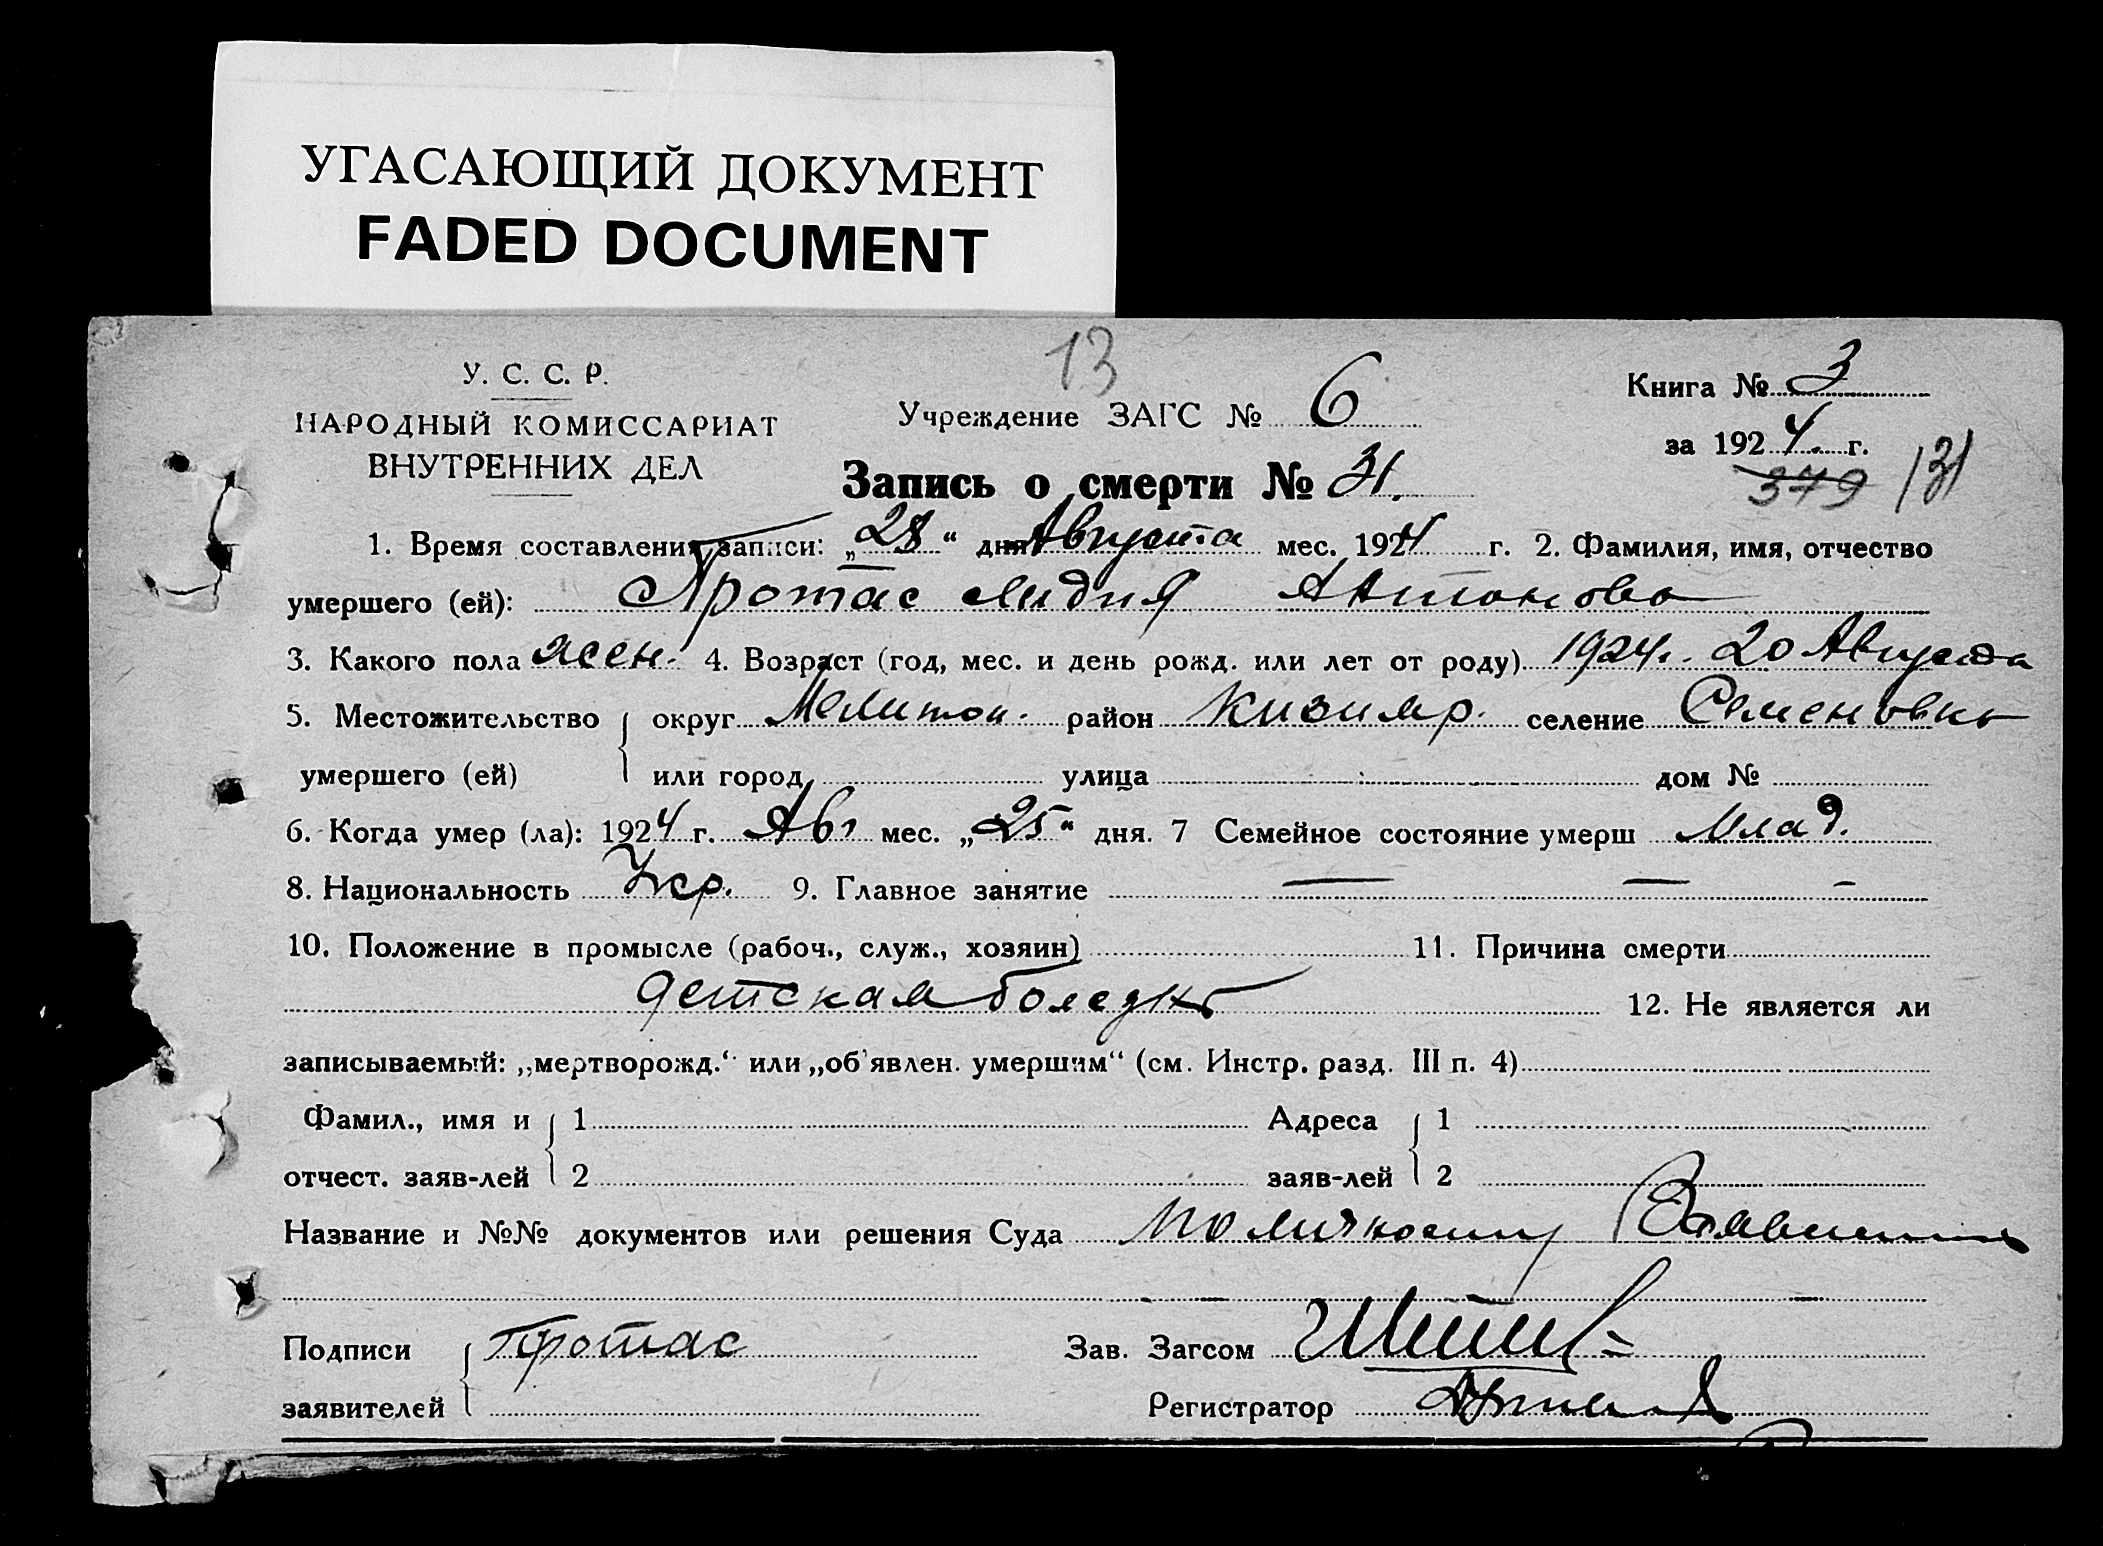 УГАСАЮЩИЙ ДОКУМЕНТ
FADED DOCUMENT
13
У. С. С. Р.
НАРОДНЫЙ КОМИССАРИАТ
ВНУТРЕННИХ ДЕЛ
Учреждение ЗАГС № 6
Книга № 3
за 1924 г.
379 131
Запись о смерти № 31.
1. Время составления записи: „28“ дня Августа мес. 1924 г. 2. Фамилия, имя, отчество
умершего (ей): Протас Лидия Антоновна
3. Какого пола жен. 4. Возраст (год, мес. и день рожд. или лет от роду) 1924 г. 20 Августа
5. Местожительство округ Мелитоп. район Кизияр. селение Семеновка
умершего (ей) или город улица дом №
6. Когда умер (ла): 1924 г. Авг мес. „25“ дня. 7 Семейное состояние умерш Млад.
8. Национальность Укр. 9. Главное занятие — — -
10. Положение в промысле (рабоч., служ., хозяин) 11. Причина смерти
детская болезнь 12. Не является ли
записываемый: „мертворожд.“ или „об'явлен. умершим“ (см. Инстр. разд. III п. 4)
Фамил., имя и 1 Адреса 1
отчест. заяв-лей 2 заяв-лей 2
Название и №№ документов или решения Суда По личному Заявлению
Подписи Протас Зав. Загсом
заявителей Регистратор